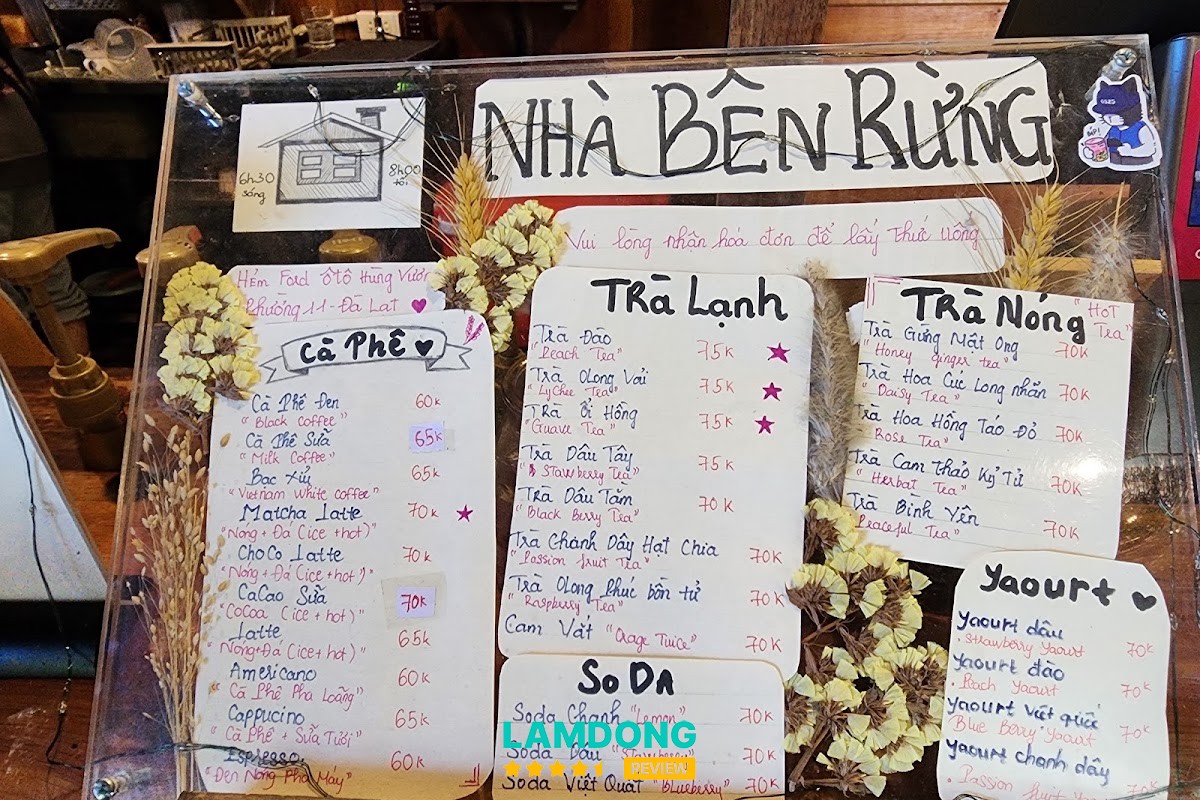 NHÀ BÊN RỪNG
6h30 sáng
8h00 tối
Vui lòng nhận hóa đơn để lấy thức uống
Hẻm Ford Ôtô Hùng Vương
Phường 11 - Đà Lạt
Cà Phê
Cà Phê Đen 60k
"Black coffee"
Cà Phê Sữa 65k
"Milk Coffee"
Bạc xỉu 65k
"Vietnam White coffee"
Matcha Latte 70k
"Nóng + Đá (ice + hot)"
ChoCo Latte 70k
"Nóng + Đá (ice + hot)"
CaCao Sữa 70k
"CoCoa (ice + hot)"
Latte 65k
"Nóng + Đá (ice + hot)"
Americano 60k
"Cà Phê Pha Loãng"
Cappucino 65k
"Cà Phê + Sữa Tươi"
Espresso 60k
"Đen Nóng Pha Máy"
Trà Lạnh
Trà Đào 75k
"Peach Tea"
Trà Olong Vải 75k
"Lychee Tea"
Trà Ổi Hồng 75k
"Guave Tea"
Trà Dâu Tây 75k
"Stawberry Tea"
Trà Dâu Tằm 70k
"Black Berry Tea"
Trà Chanh Dây Hạt Chia 70k
"Passion fruit Tea"
Trà Olong Phúc bồn tử 70k
"Raspberry Tea"
Cam Vắt "Orage Juice" 70k
SoDA
Soda Chanh "Lemon" 70k
Soda Dâu "Stawberry" 70k
Soda Việt Quất "blueberry" 70k
Trà Nóng "HoT Tea"
Trà Gừng Mật Ong 70k
"Honey ginger tea"
Trà Hoa Cúc Long nhãn 70k
"Daisy Tea"
Trà Hoa Hồng Táo Đỏ 70k
"Rose Tea"
Trà Cam Thảo Kỷ Tử 70k
"Herbat Tea"
Trà Bình Yên 70k
"Peaceful Tea"
Yaourt
Yaourt dâu 70k
Strawberry Yaourt
Yaourt đào 70k
Peach Yaourt
Yaourt việt quất 70k
Blue Berry Yaourt
Yaourt chanh dây 70k
Passion fruit
LAMDONG
REVIEW